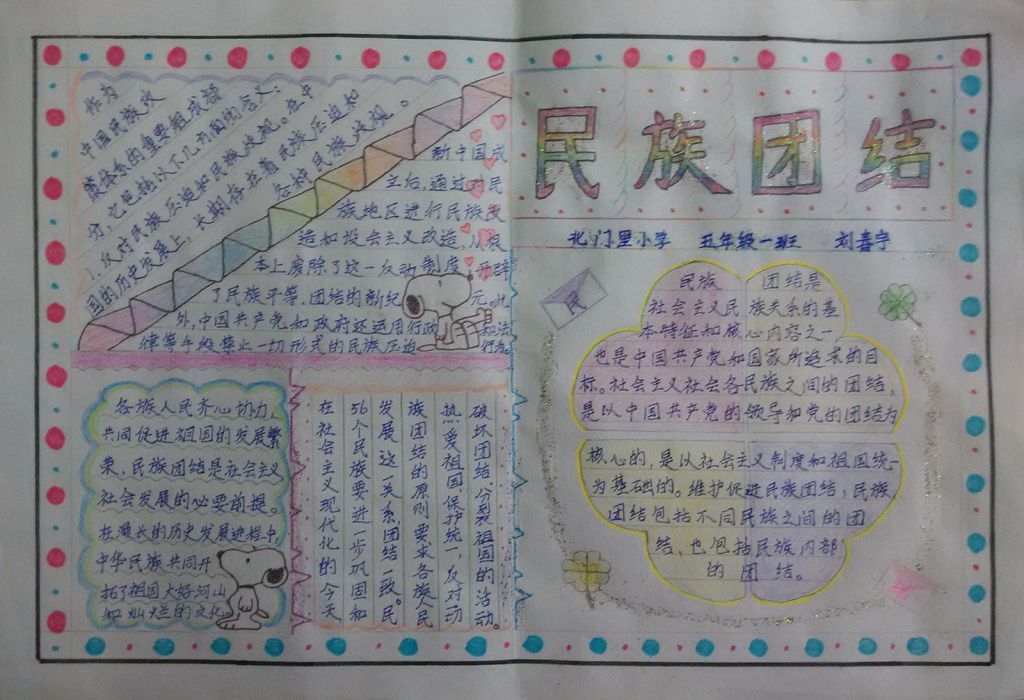 民族团结
北门里小学 五年级一班 刘喜宇
作为
中国民族政
策体系的重要组成部
分，它包括以下几方面的含义：
1.反对民族压迫和民族歧视。在中
国的历史发展上，长期存在着民族压迫和
各种民族歧视。
新中国成
立后，通过对民
族地区进行民族改
造和设会主义改造，从根
本上废除了这一反动制度，开辟
了民族平等、团结的新纪元。此
外，中国共产党和政府还运用行政和法
律等手段禁止一切形式的民族压迫行为。
各族人民齐心协力，
共同促进祖国的发展繁
荣，民族团结是社会主义
社会发展的必要前提。
在漫长的历史发展进程中，
中华民族共同开
拓了祖国大好河山
和灿烂的文化。
在社会主义现代化的今天
56个民族要进一步巩固和
发展这一关系，团结一致。民
族团结的原则要求各族人民
热爱祖国，保护统一，反对动
破坏团结、分裂祖国的活动。
民
民族团结是
社会主义民族关系的基
本特征和核心内容之一
也是中国共产党和国家所追求的目
标。社会主义社会各民族之间的团结，
是以中国共产党的领导和党的团结为
核心的，是以社会主义制度和祖国统一
为基础的。维护促进民族团结，民族
团结包括不同民族之间的团
结，也包括民族内部
的团结。